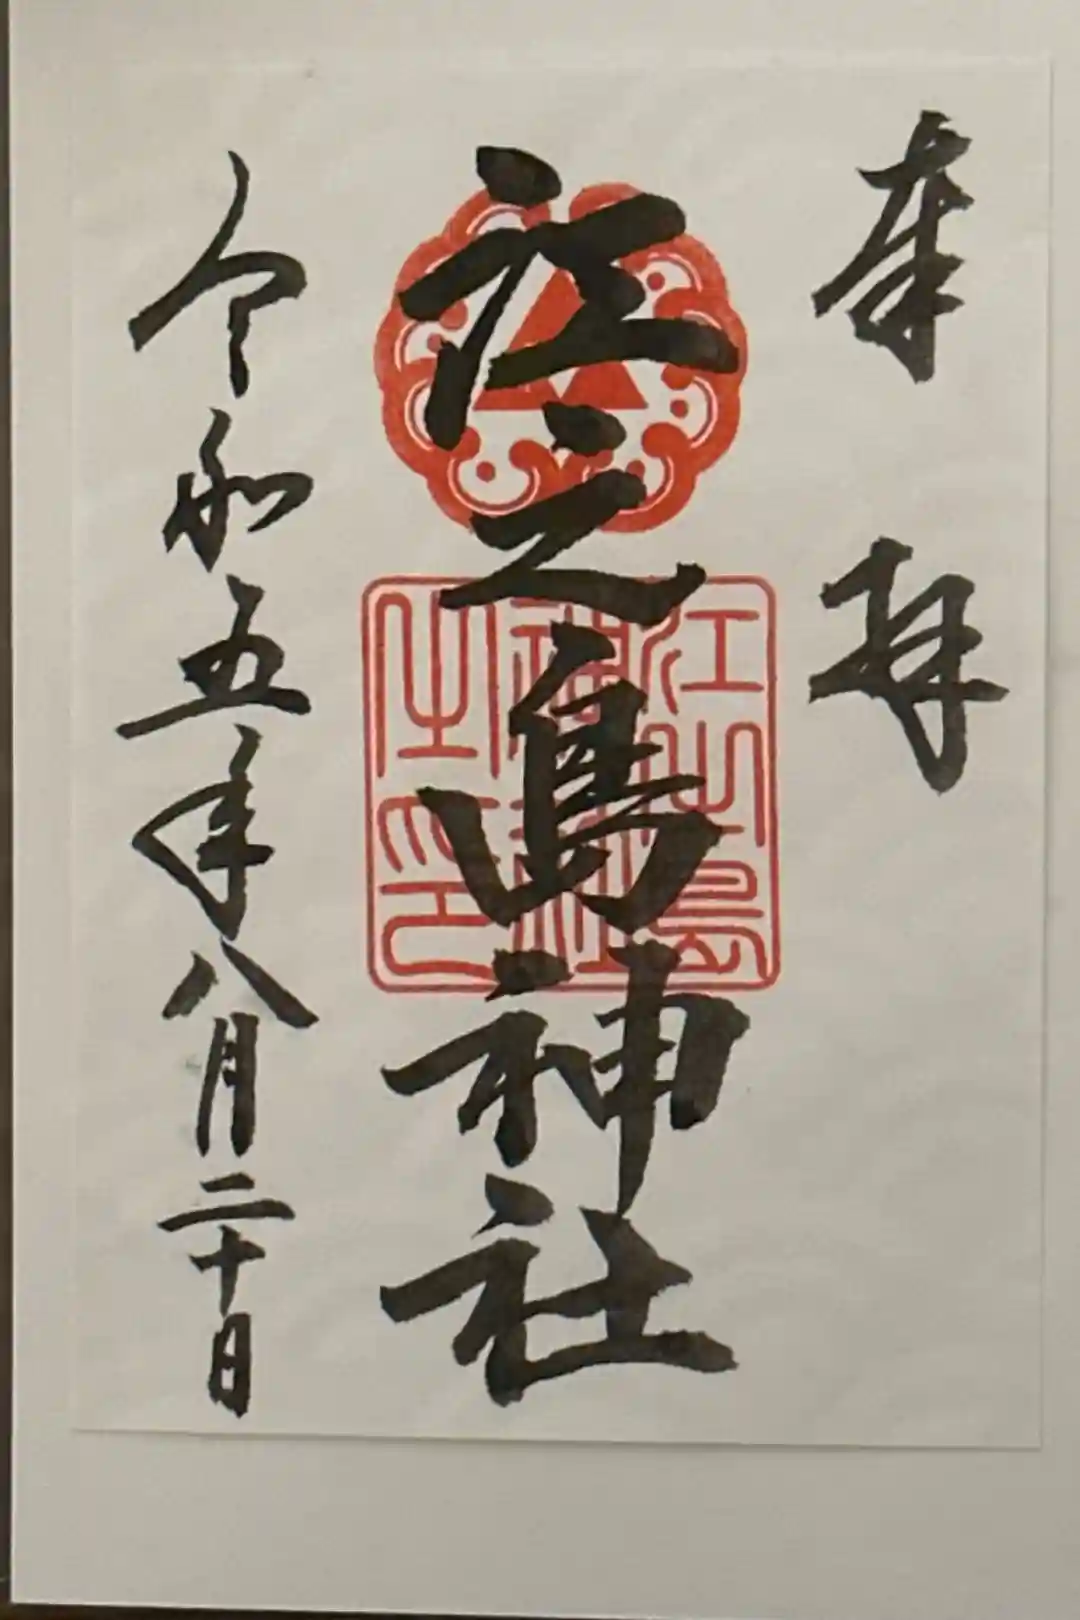 奉拝
江之島神社
令和五年八月二十日
江之島
神社
之印